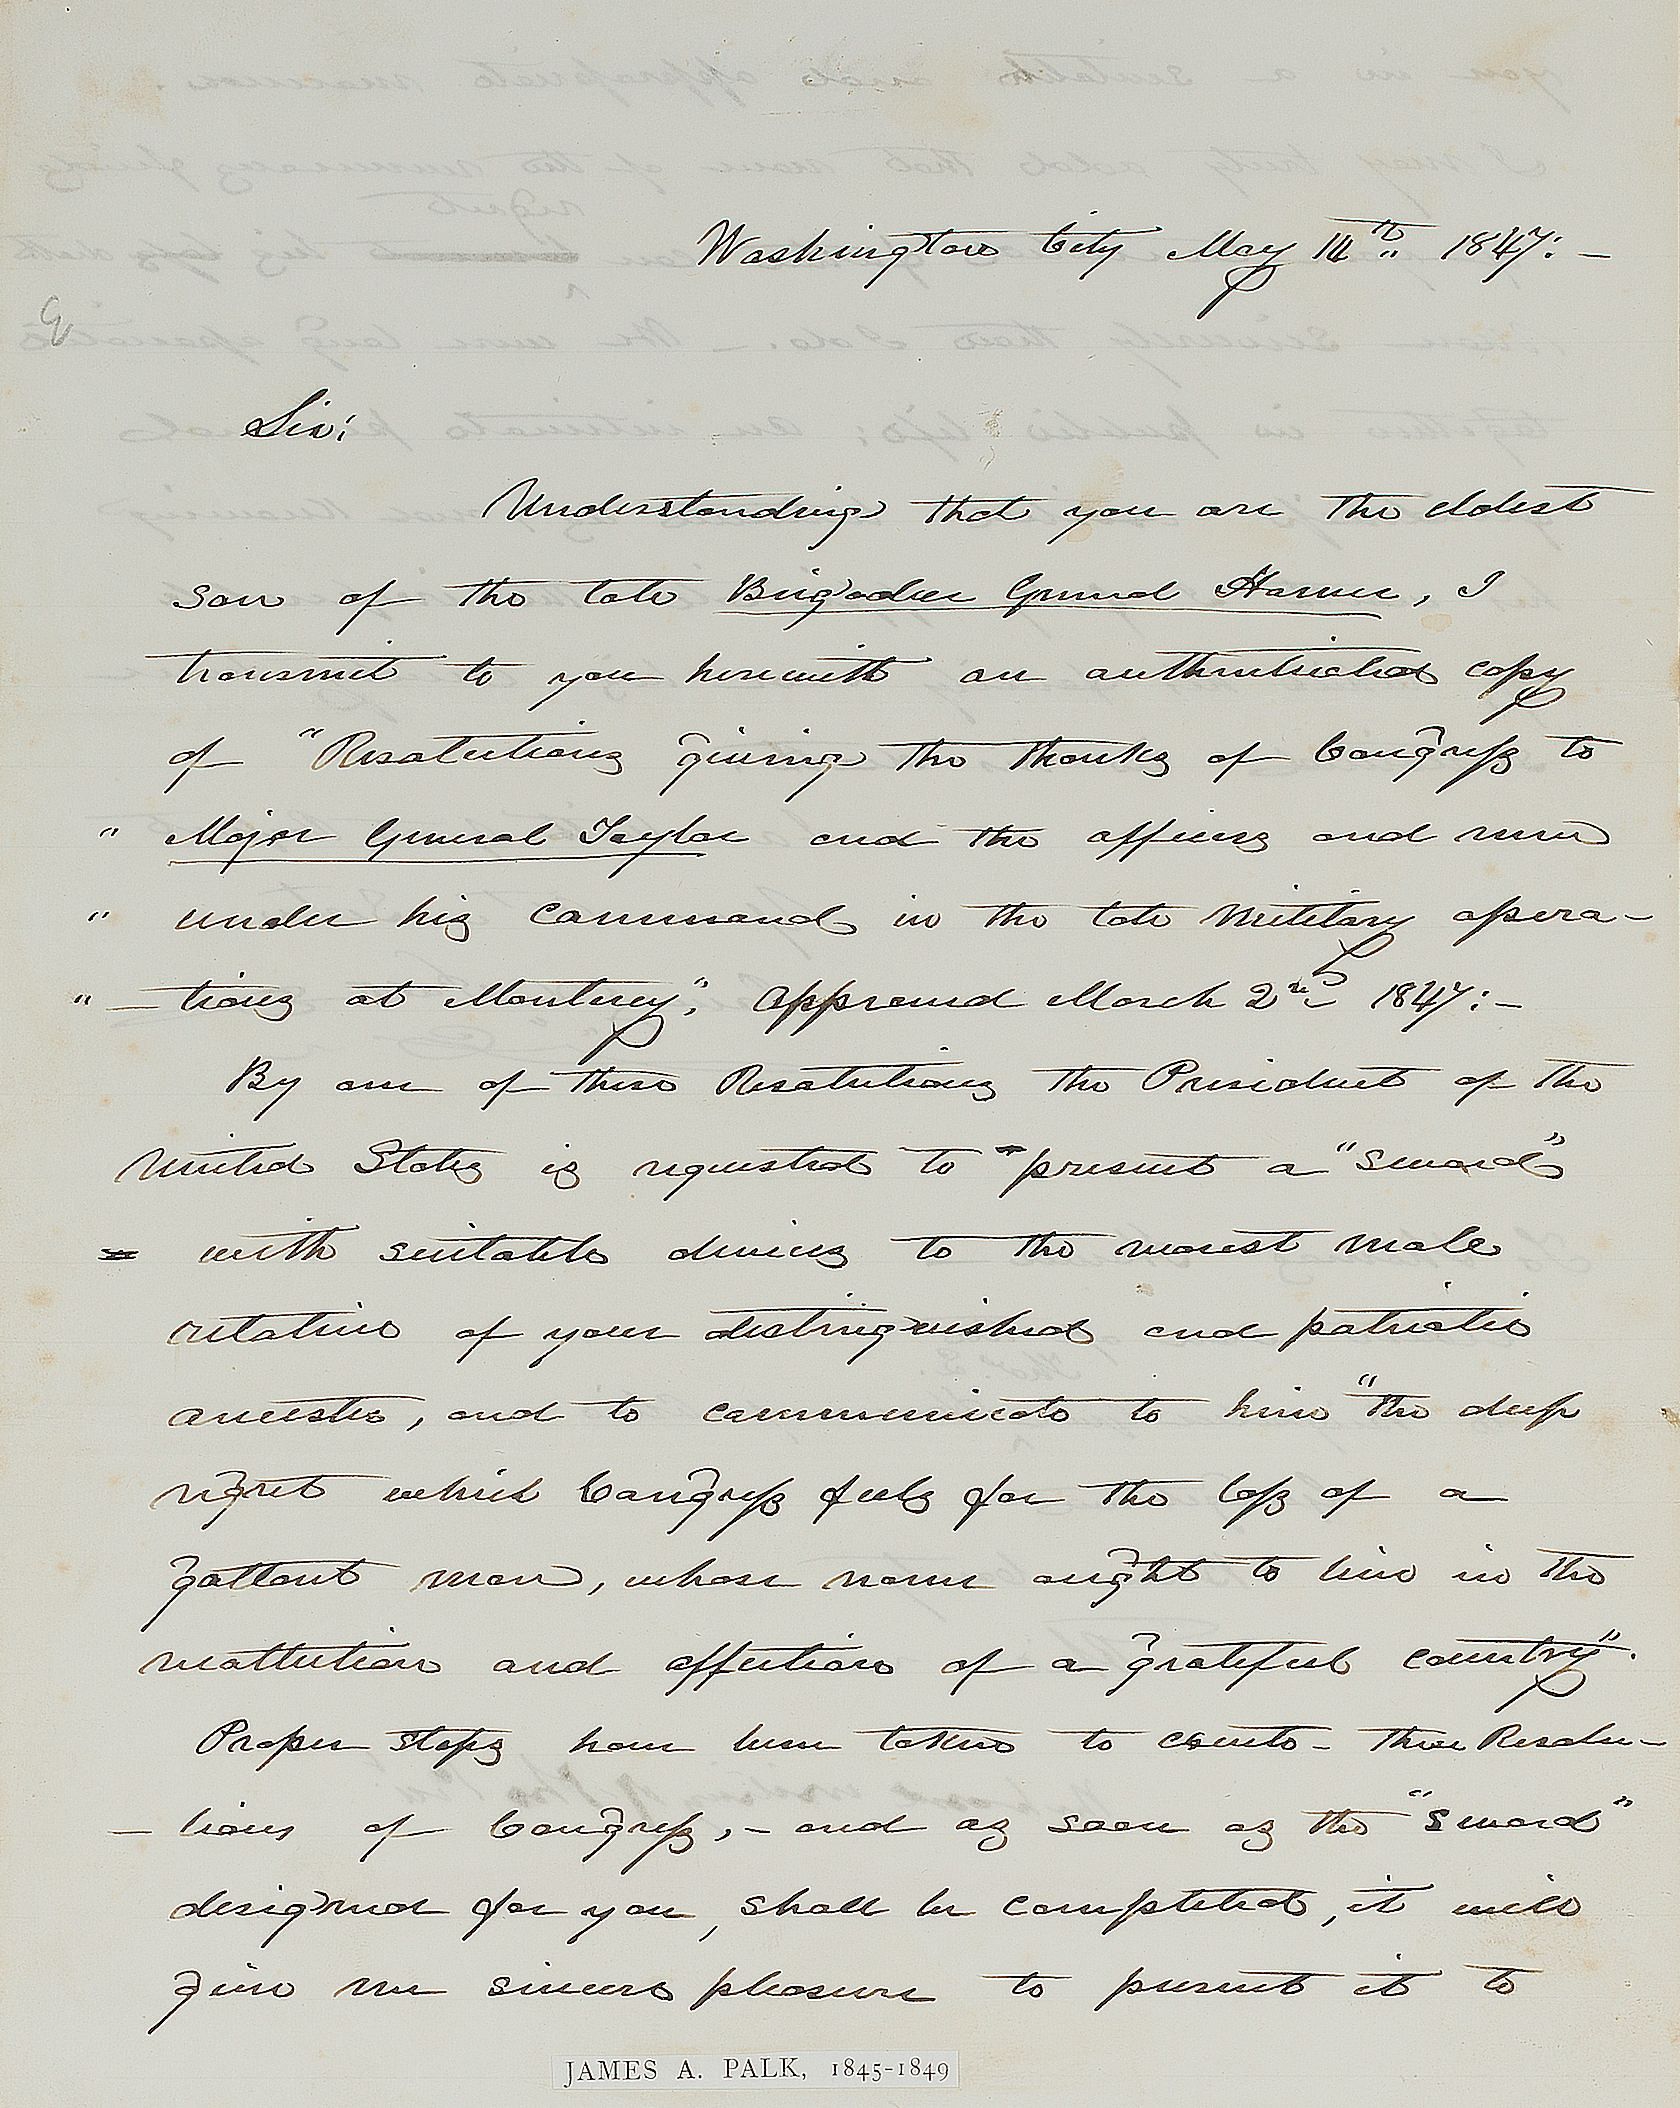 Washington City May 14th 1847:-
Sir:
Understanding that you are the eldest
son of the late Brigadier General Hamer, I
transmit to you herewith an authenticated copy
of "Resolutions giving the thanks of Congress to
" Major General Taylor and the officers and men
" under his command in the late military opera-
" -tions at Monterey", approved March 2nd 1847:-
By one of these Resolutions the President of the
United States is requested to present a "sword"
= with suitable devices to the nearest male
relative of your distinguished and patriotic
ancestor, and to communicate to him "the deep
regret which Congress feels for the loss of a
gallant man, whose name ought to live in the
recollection and affection of a grateful country".
Proper steps have been taken to execute - these Resolu-
-tions of Congress, - and as soon as the "sword"
designed for you, shall be completed, it will
give me sincere pleasure to present it to
JAMES A. PALK, 1845-1849